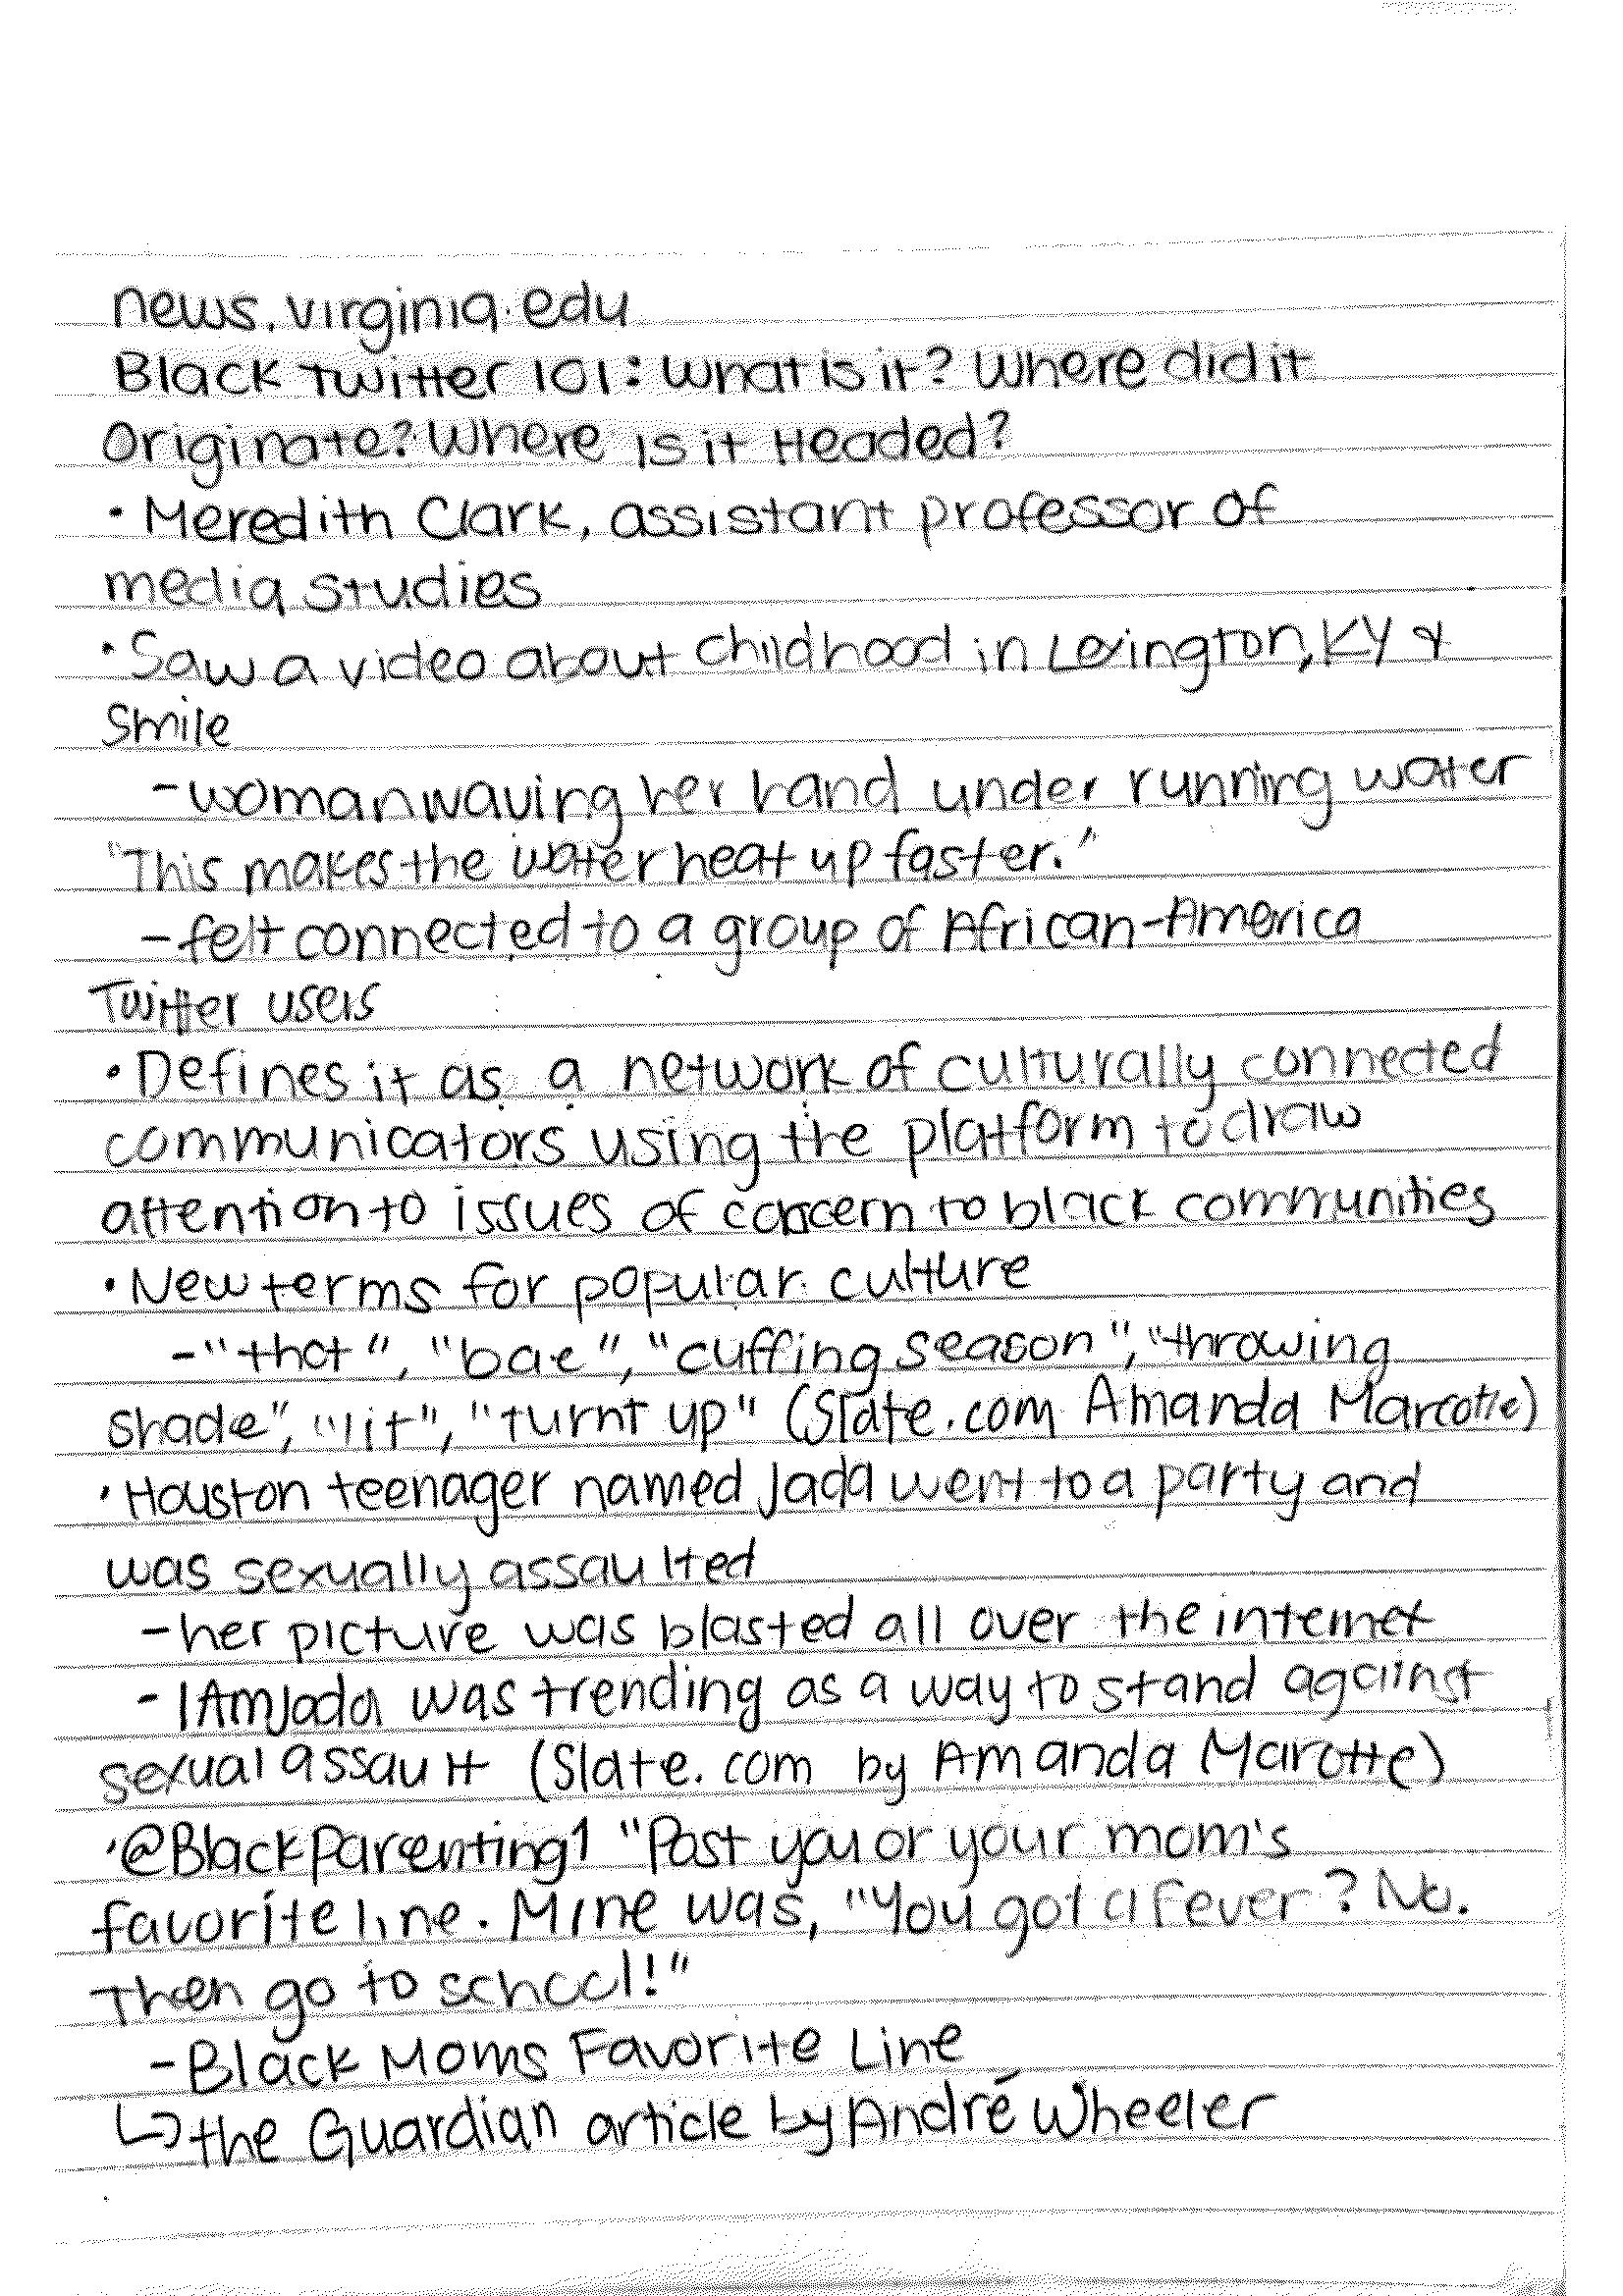 news.virginia.edu
Black Twitter 101: What is it? Where did it
Originate? Where is it Headed?
• Meredith Clark, assistant professor of
media studies
• Saw a video about childhood in Lexington, KY &
Smile
- woman waving her hand under running water
"This makes the water heat up faster."
- felt connected to a group of African-America
Twitter users
• Defines it as a network of culturally connected
communicators using the platform to draw
attention to issues of concern to black communities
• New terms for popular culture
- "thot", "bae", "cuffing season", "throwing
shade", "lit", "turnt up" (Slate.com Amanda Marcotte)
• Houston teenager named Jada went to a party and
was sexually assaulted
- her picture was blasted all over the internet
- IAmJada was trending as a way to stand against
sexual assault (Slate.com by Amanda Marotte)
• @BlackParenting1 "Post you or your mom's
favorite line. Mine was, "You got a fever? No.
Then go to school!"
- Black Moms Favorite Line
↳ the Guardian article by André Wheeler